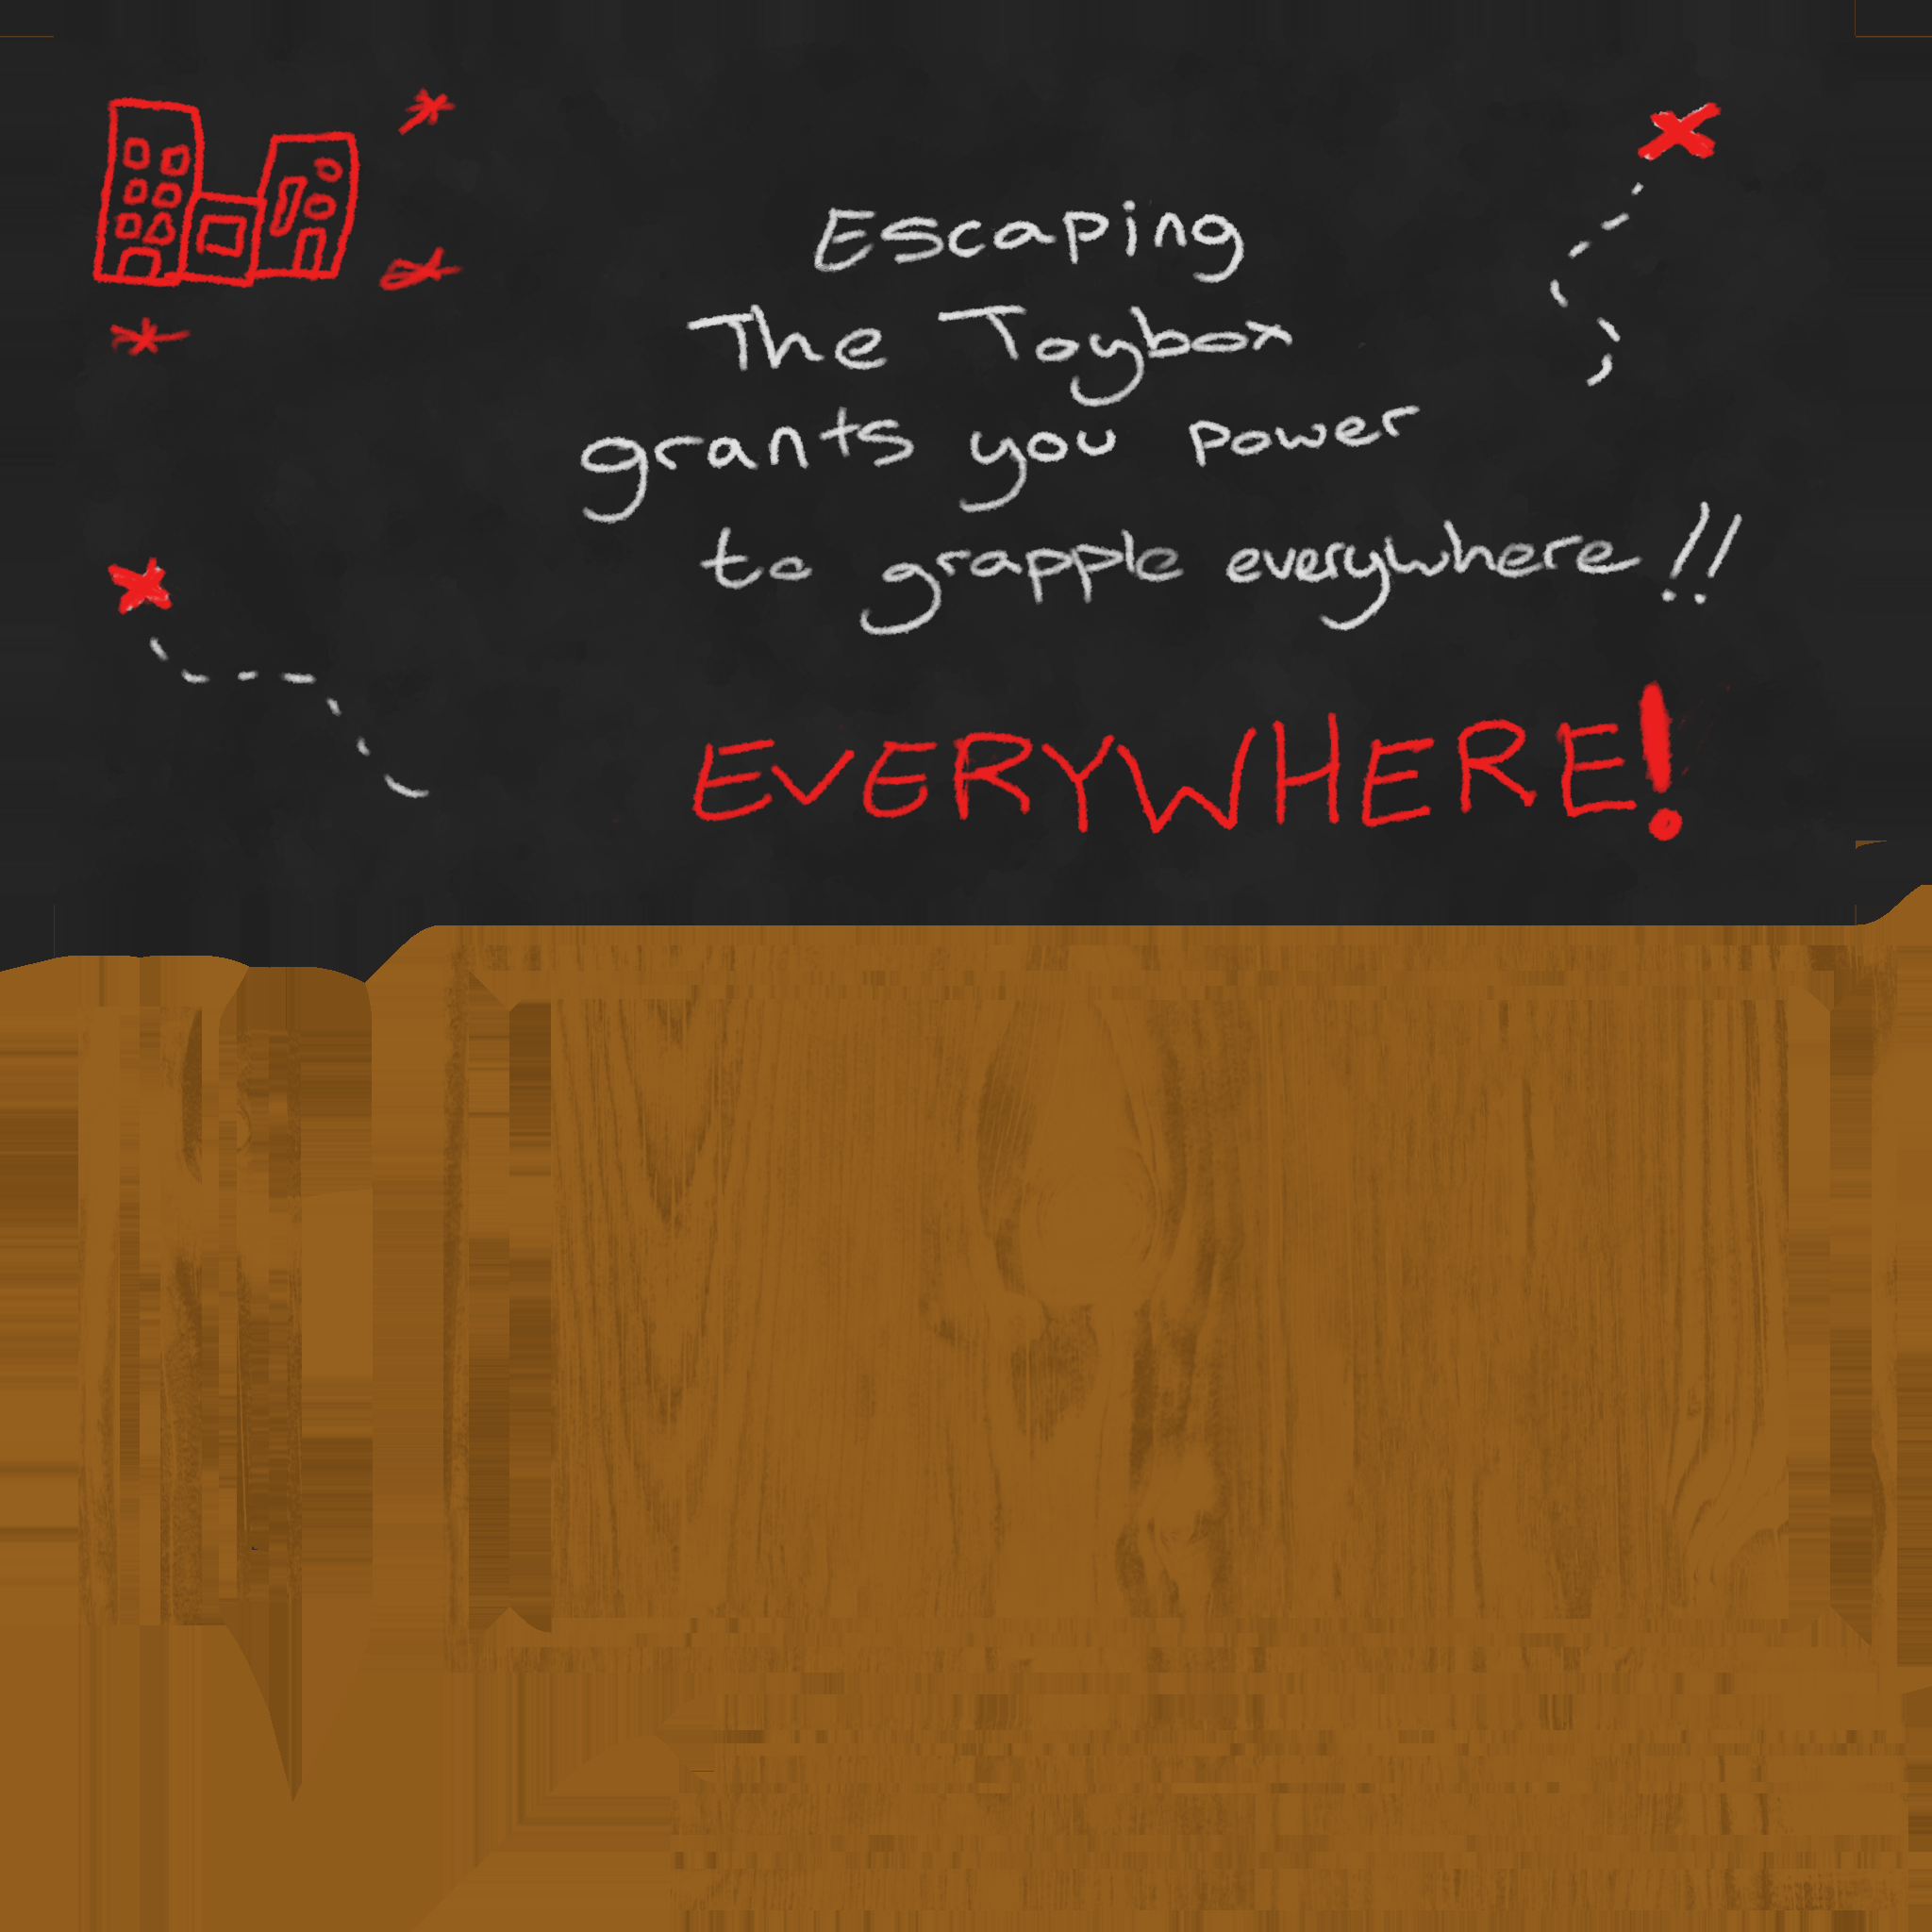 Escaping
The Toybox
grants you power
to grapple everywhere!!
EVERYWHERE!